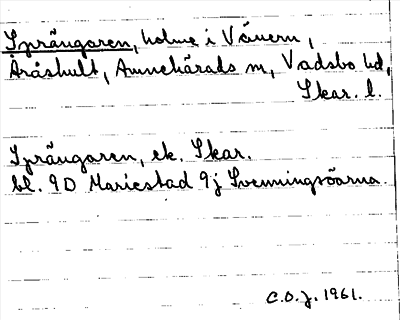 Sprängaren, holme i Vänern,
Åråshult, Amnehärads sn, Vadsbo hd,
Skar. l.
Sprängaren, ek. Skar.
bl. 9D Mariestad 9j Svenningsöarna
C.O.J. 1961.